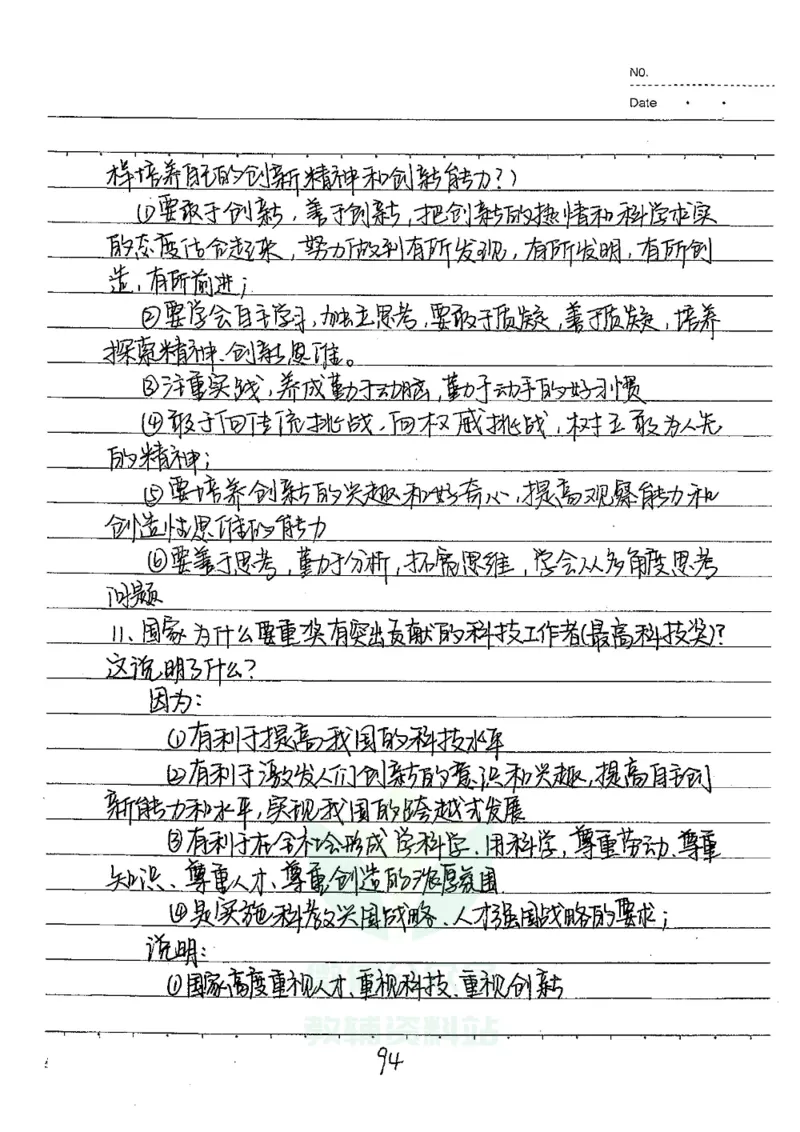 NO.
Date
样培养自己的创新精神和创新能力?)
①要敢于创新,善于创新,把创新的热情和科学求实
的态度结合起来,努力做到有所发现,有所发明,有所创
造,有所前进;
②要学会自主学习,独立思考,要敢于质疑,善于质疑,培养
探索精神、创新思维。
③注重实践,养成勤于动脑,勤于动手的好习惯
④敢于向传统挑战、向权威挑战,树立敢为人先
的精神;
⑤要培养创新的兴趣和好奇心,提高观察能力和
创造性思维的能力
⑥要善于思考,勤于分析,拓宽思维,学会从多角度思考
问题
11、国家为什么要重奖有突出贡献的科技工作者(最高科技奖)?
这说明了什么?
因为:
①有利于提高我国的科技水平
②有利于激发人们创新的意识和兴趣,提高自主创
新能力和水平,实现我国的跨越式发展
③有利于在全社会形成学科学、用科学,尊重劳动、尊重
知识、尊重人才、尊重创造的浓厚氛围
④是实施科教兴国战略、人才强国战略的要求;
说明:
①国家高度重视人才、重视科技、重视创新
教辅资料站
94